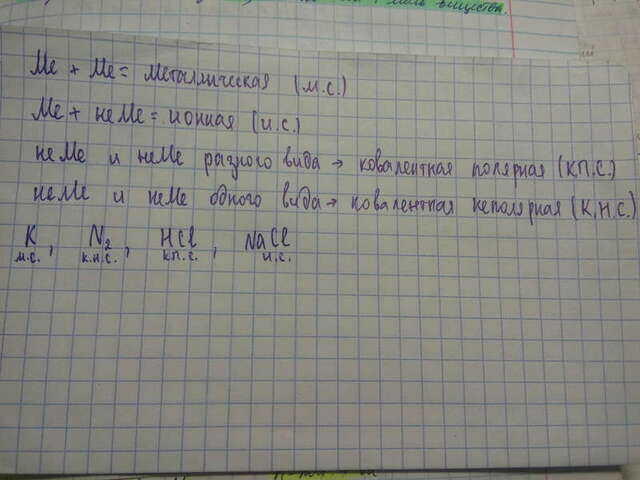 моль вещества.
Me + Me = металлическая (м.с.)
Me + неМе = ионная (и.с.)
неМе и неМе разного вида → ковалентная полярная (КП.С.)
неМе и неМе одного вида → ковалентная неполярная (К.Н.С.)
K, N₂, HCl, NaCl
м.с. к.н.с. кп.с. и.с.